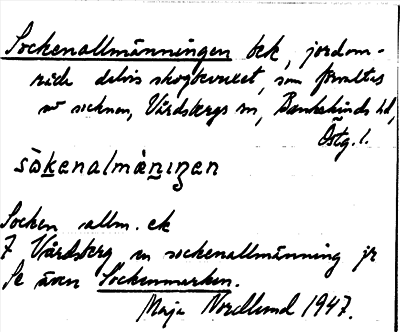 Sockenallmänningen bek, jordom-
råde delvis skogbevuxet, som förvaltas
av socknen, Vårdsbergs sn, Bankekinds hd,
Östg. l.
sökenalmäniŋen
Socken allm. ek
7 Vårdsberg sn sockenallmänning jr
Se även Sockenmarken.
Maja Nordlund 1947.